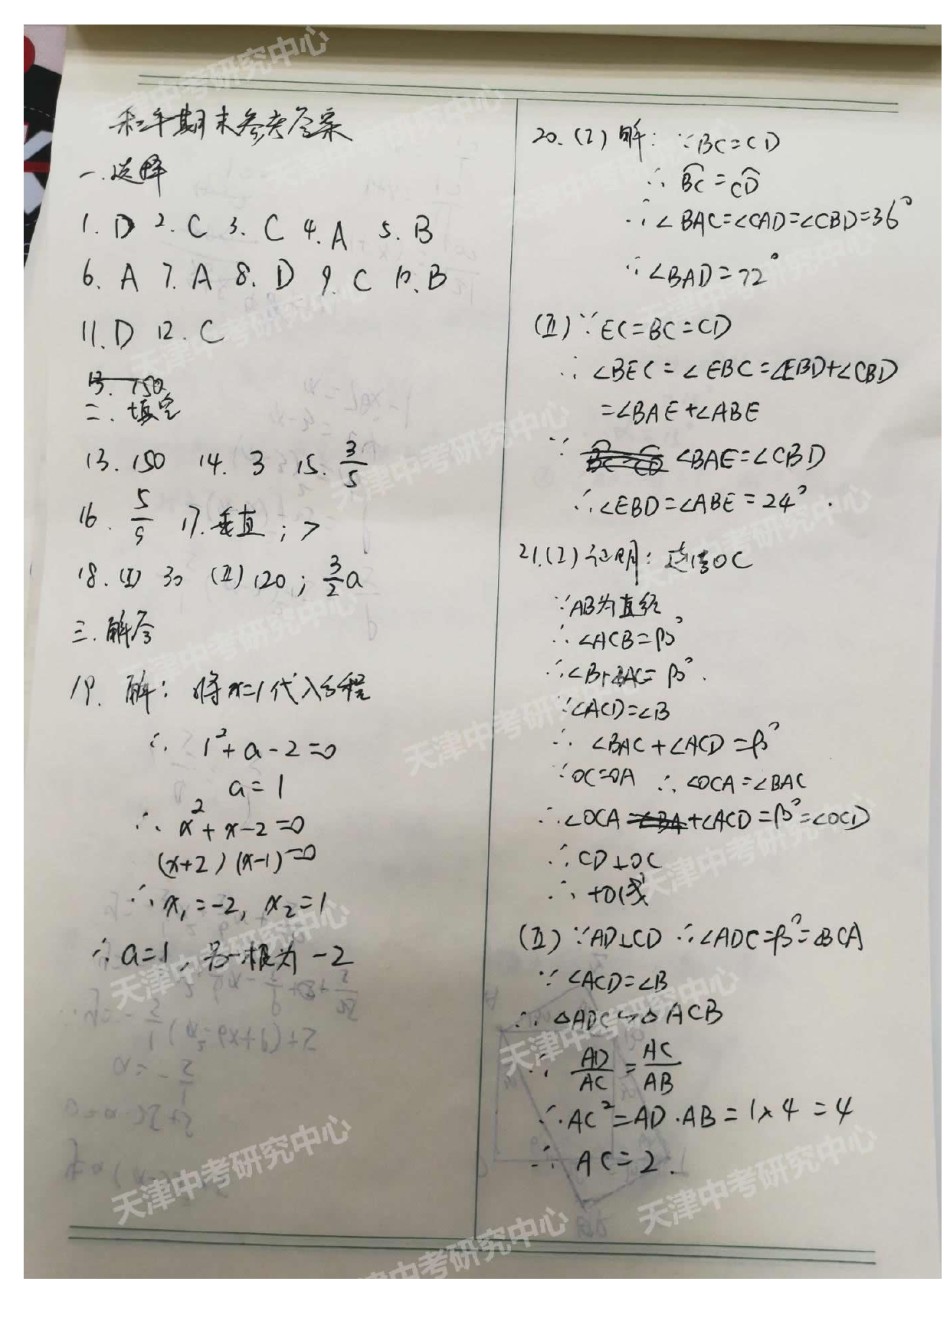 和平期末参考答案
一.选择
1. D 2. C 3. C 4. A 5. B
6. A 7. A 8. D 9. C 10. B
11. D 12. C
13. 150
二. 填空
13. 150 14. 3 15. 3/5
16. 5/9 17. 垂直; >
18. (I) 30 (II) 120; 3/2 a
三.解答
19. 解: 将x=1代入方程
∴ 1²+a-2=0
a=1
∴ x²+x-2=0
(x+2)(x-1)=0
∴ x₁=-2, x₂=1
∴ a=1, 另一根为-2
20. (I) 解: ∵BC=CD
∴ BC=CD
∴∠BAC=∠CAD=∠CBD=36°
∴∠BAD=72°
(II) ∵EC=BC=CD
∴∠BEC=∠EBC=∠EBD+∠CBD
=∠BAE+∠ABE
∵ ∠BAE=∠CBD
∴∠EBD=∠ABE=24°.
21.(I) 证明: 连接OC
∵AB为直径
∴∠ACB=90°
∴∠B+∠BAC=90°.
∵∠ACD=∠B
∴ ∠BAC+∠ACD=90°
∵OC=OA ∴∠OCA=∠BAC
∴∠OCA+∠ACD=90°=∠OCD
∴CD⊥OC
∴ 切线
(II) ∵AD⊥CD ∴∠ADC=90°=∠BCA
∵ ∠ACD=∠B
∴ △ADC∽△ACB
∴ AD/AC=AC/AB
∴AC²=AD·AB=1×4=4
∴ AC=2.
天津中考研究中心